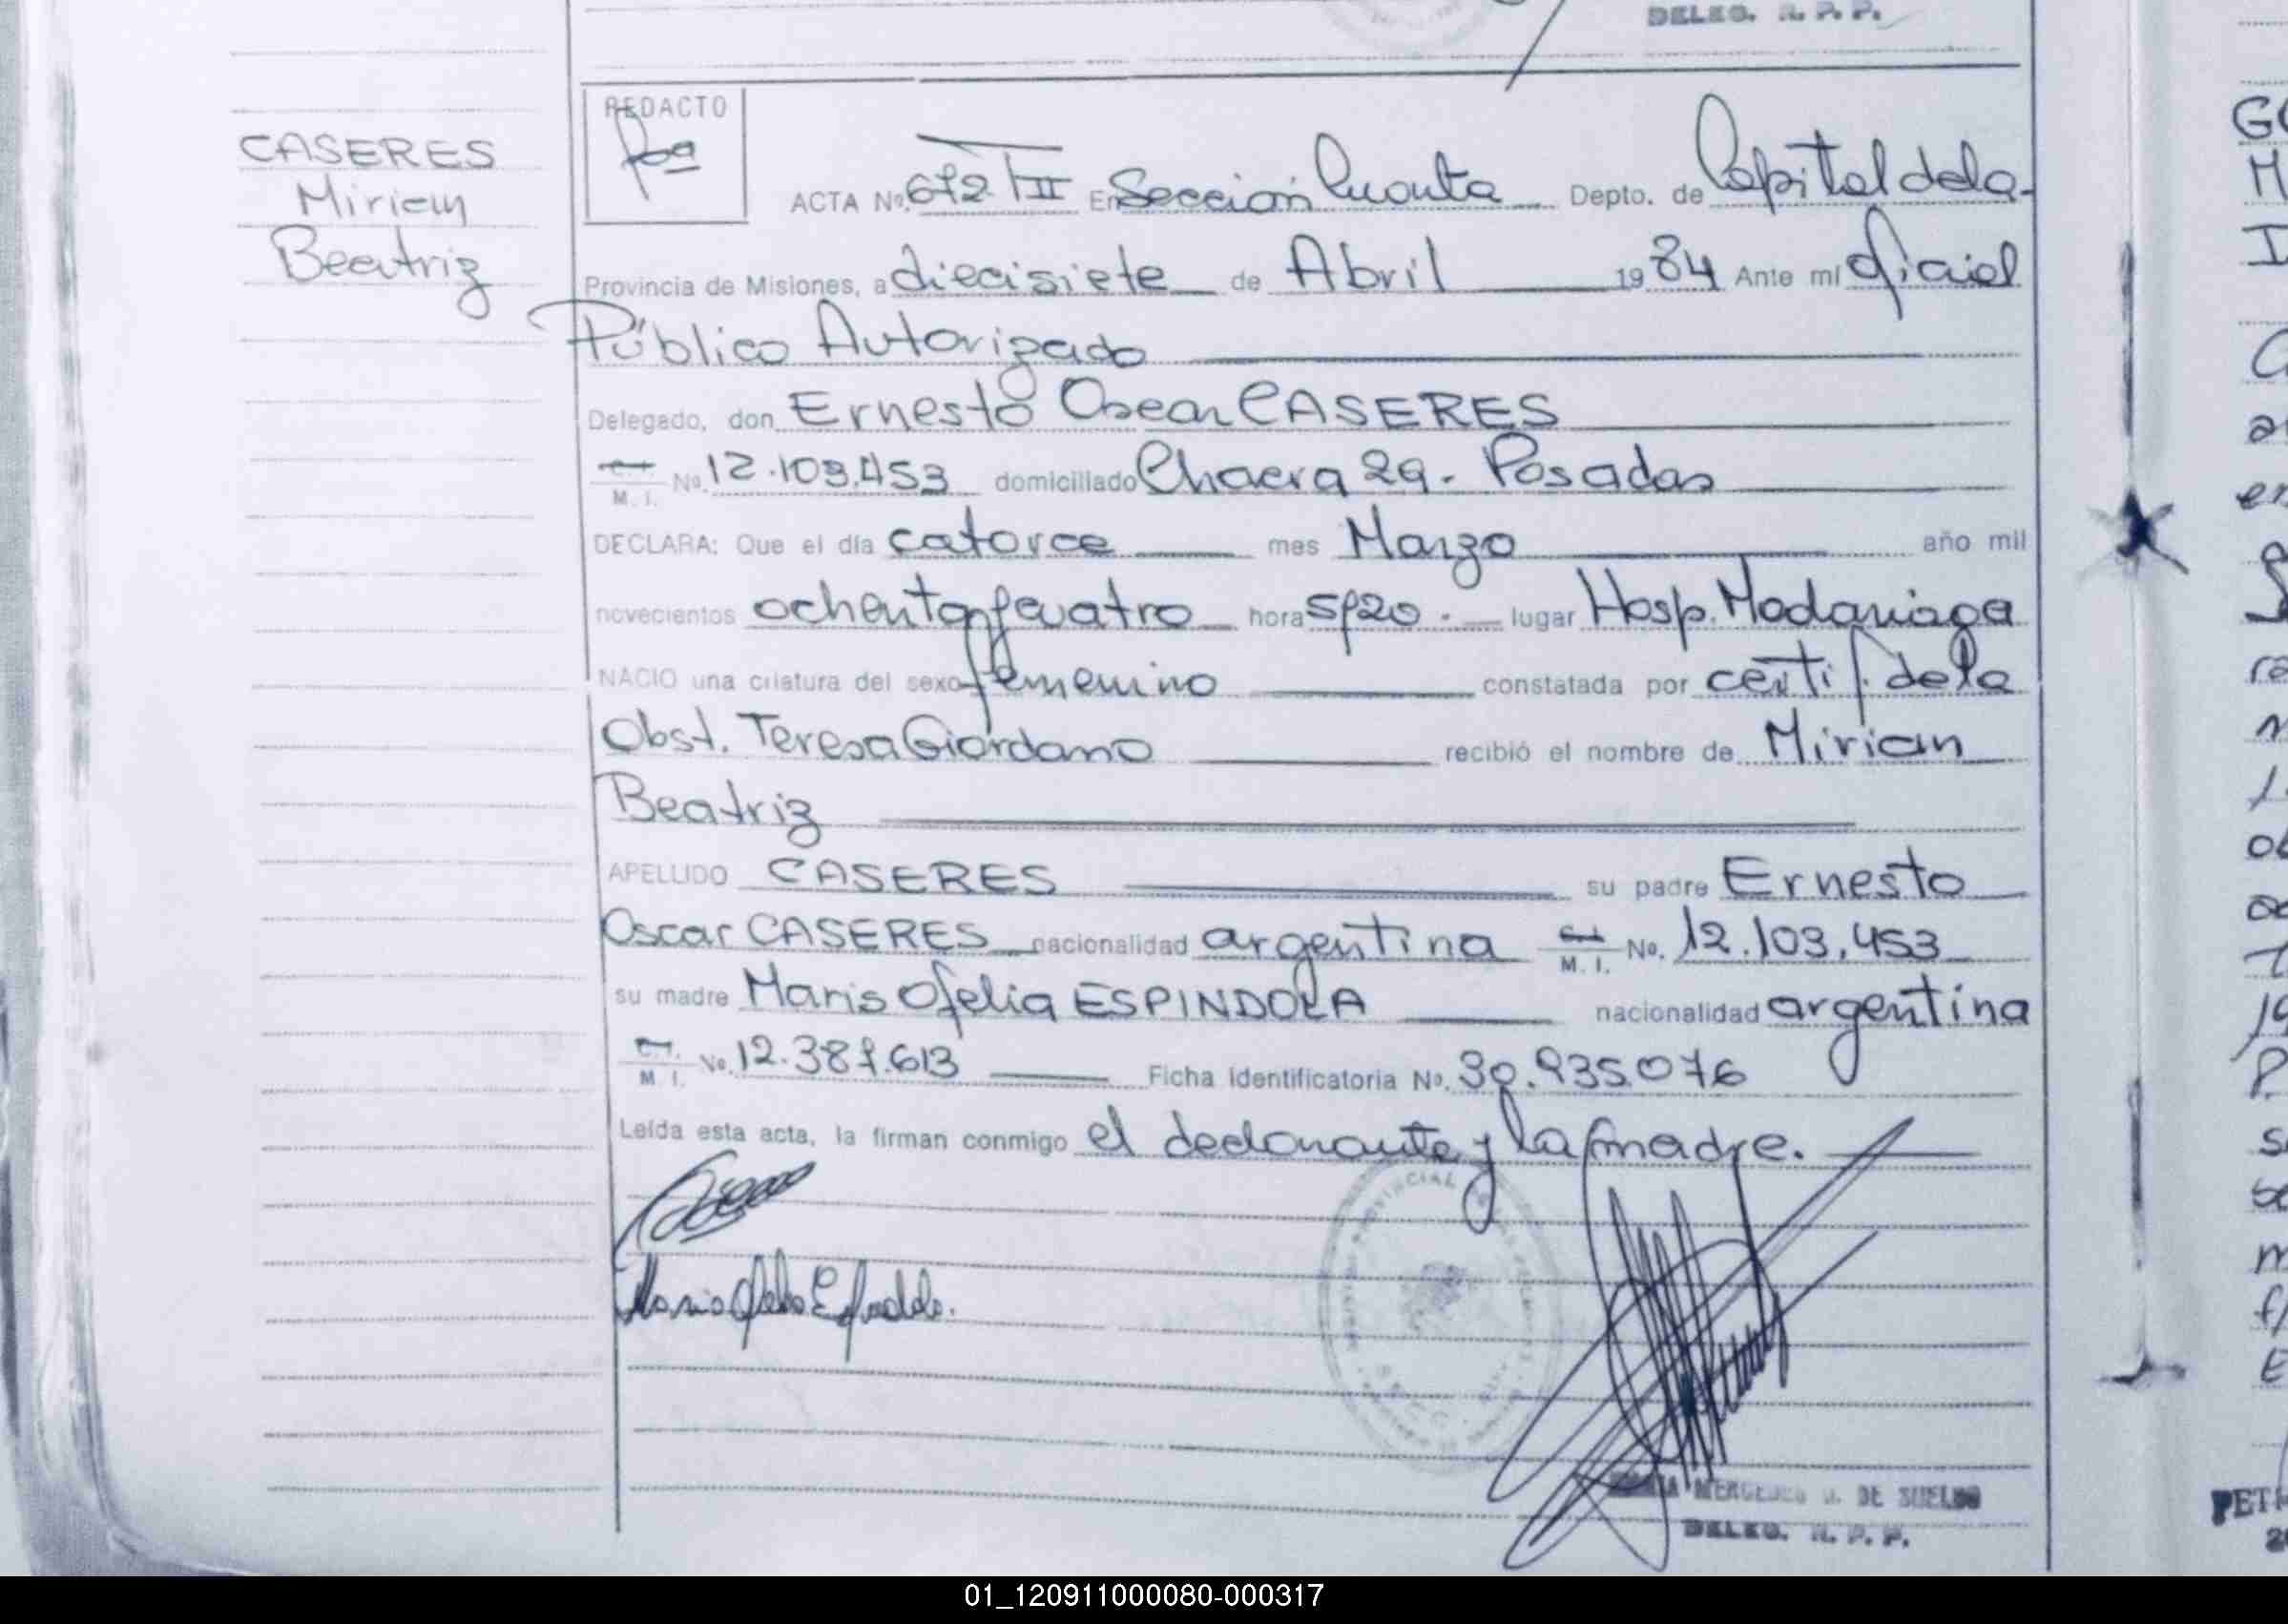 DELEG. R. P. P.
CASERES
Miriam
Beatriz
REDACTO
ACTA Nº. 672 TII En Sección Cuarta Depto. de Capital de la
Provincia de Misiones, a diecisiete de Abril 1984 Ante mí Oficial
Público Autorizado
Delegado, don Ernesto Oscar CASERES
M. I. No. 12.103.453 domiciliado Chacra 29. Posadas
DECLARA: Que el día catorce mes Marzo año mil
novecientos ochenta y cuatro hora 5,20. lugar Hosp. Madariaga
NACIO una criatura del sexo femenino constatada por certif. de la
Obst. Teresa Giordano recibió el nombre de Mirian
Beatriz
APELLIDO CASERES su padre Ernesto
Oscar CASERES nacionalidad argentina C.I. M. I. Nº. 12.103.453
su madre Maris Ofelia ESPINDOLA nacionalidad argentina
C.I. M. I. No. 12.387.613 Ficha identificatoria Nº. 30.935.076
Leída esta acta, la firman conmigo el declarante y la madre.
MERCEDES DE SUELDO
DELEG. R. P. P.
01_120911000080-000317